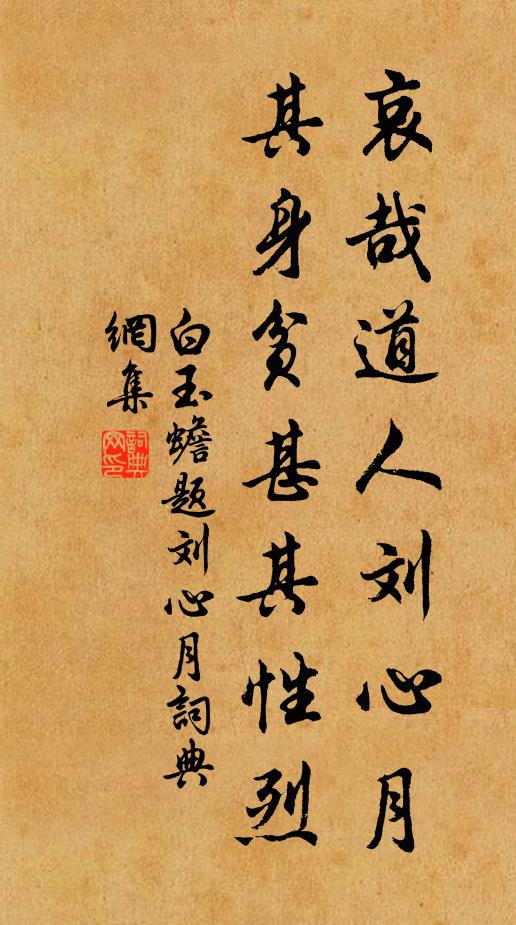 哀哉道人刘心月
其身贫甚其性烈
白玉蟾题刘心月詞典
網集
詞典网印